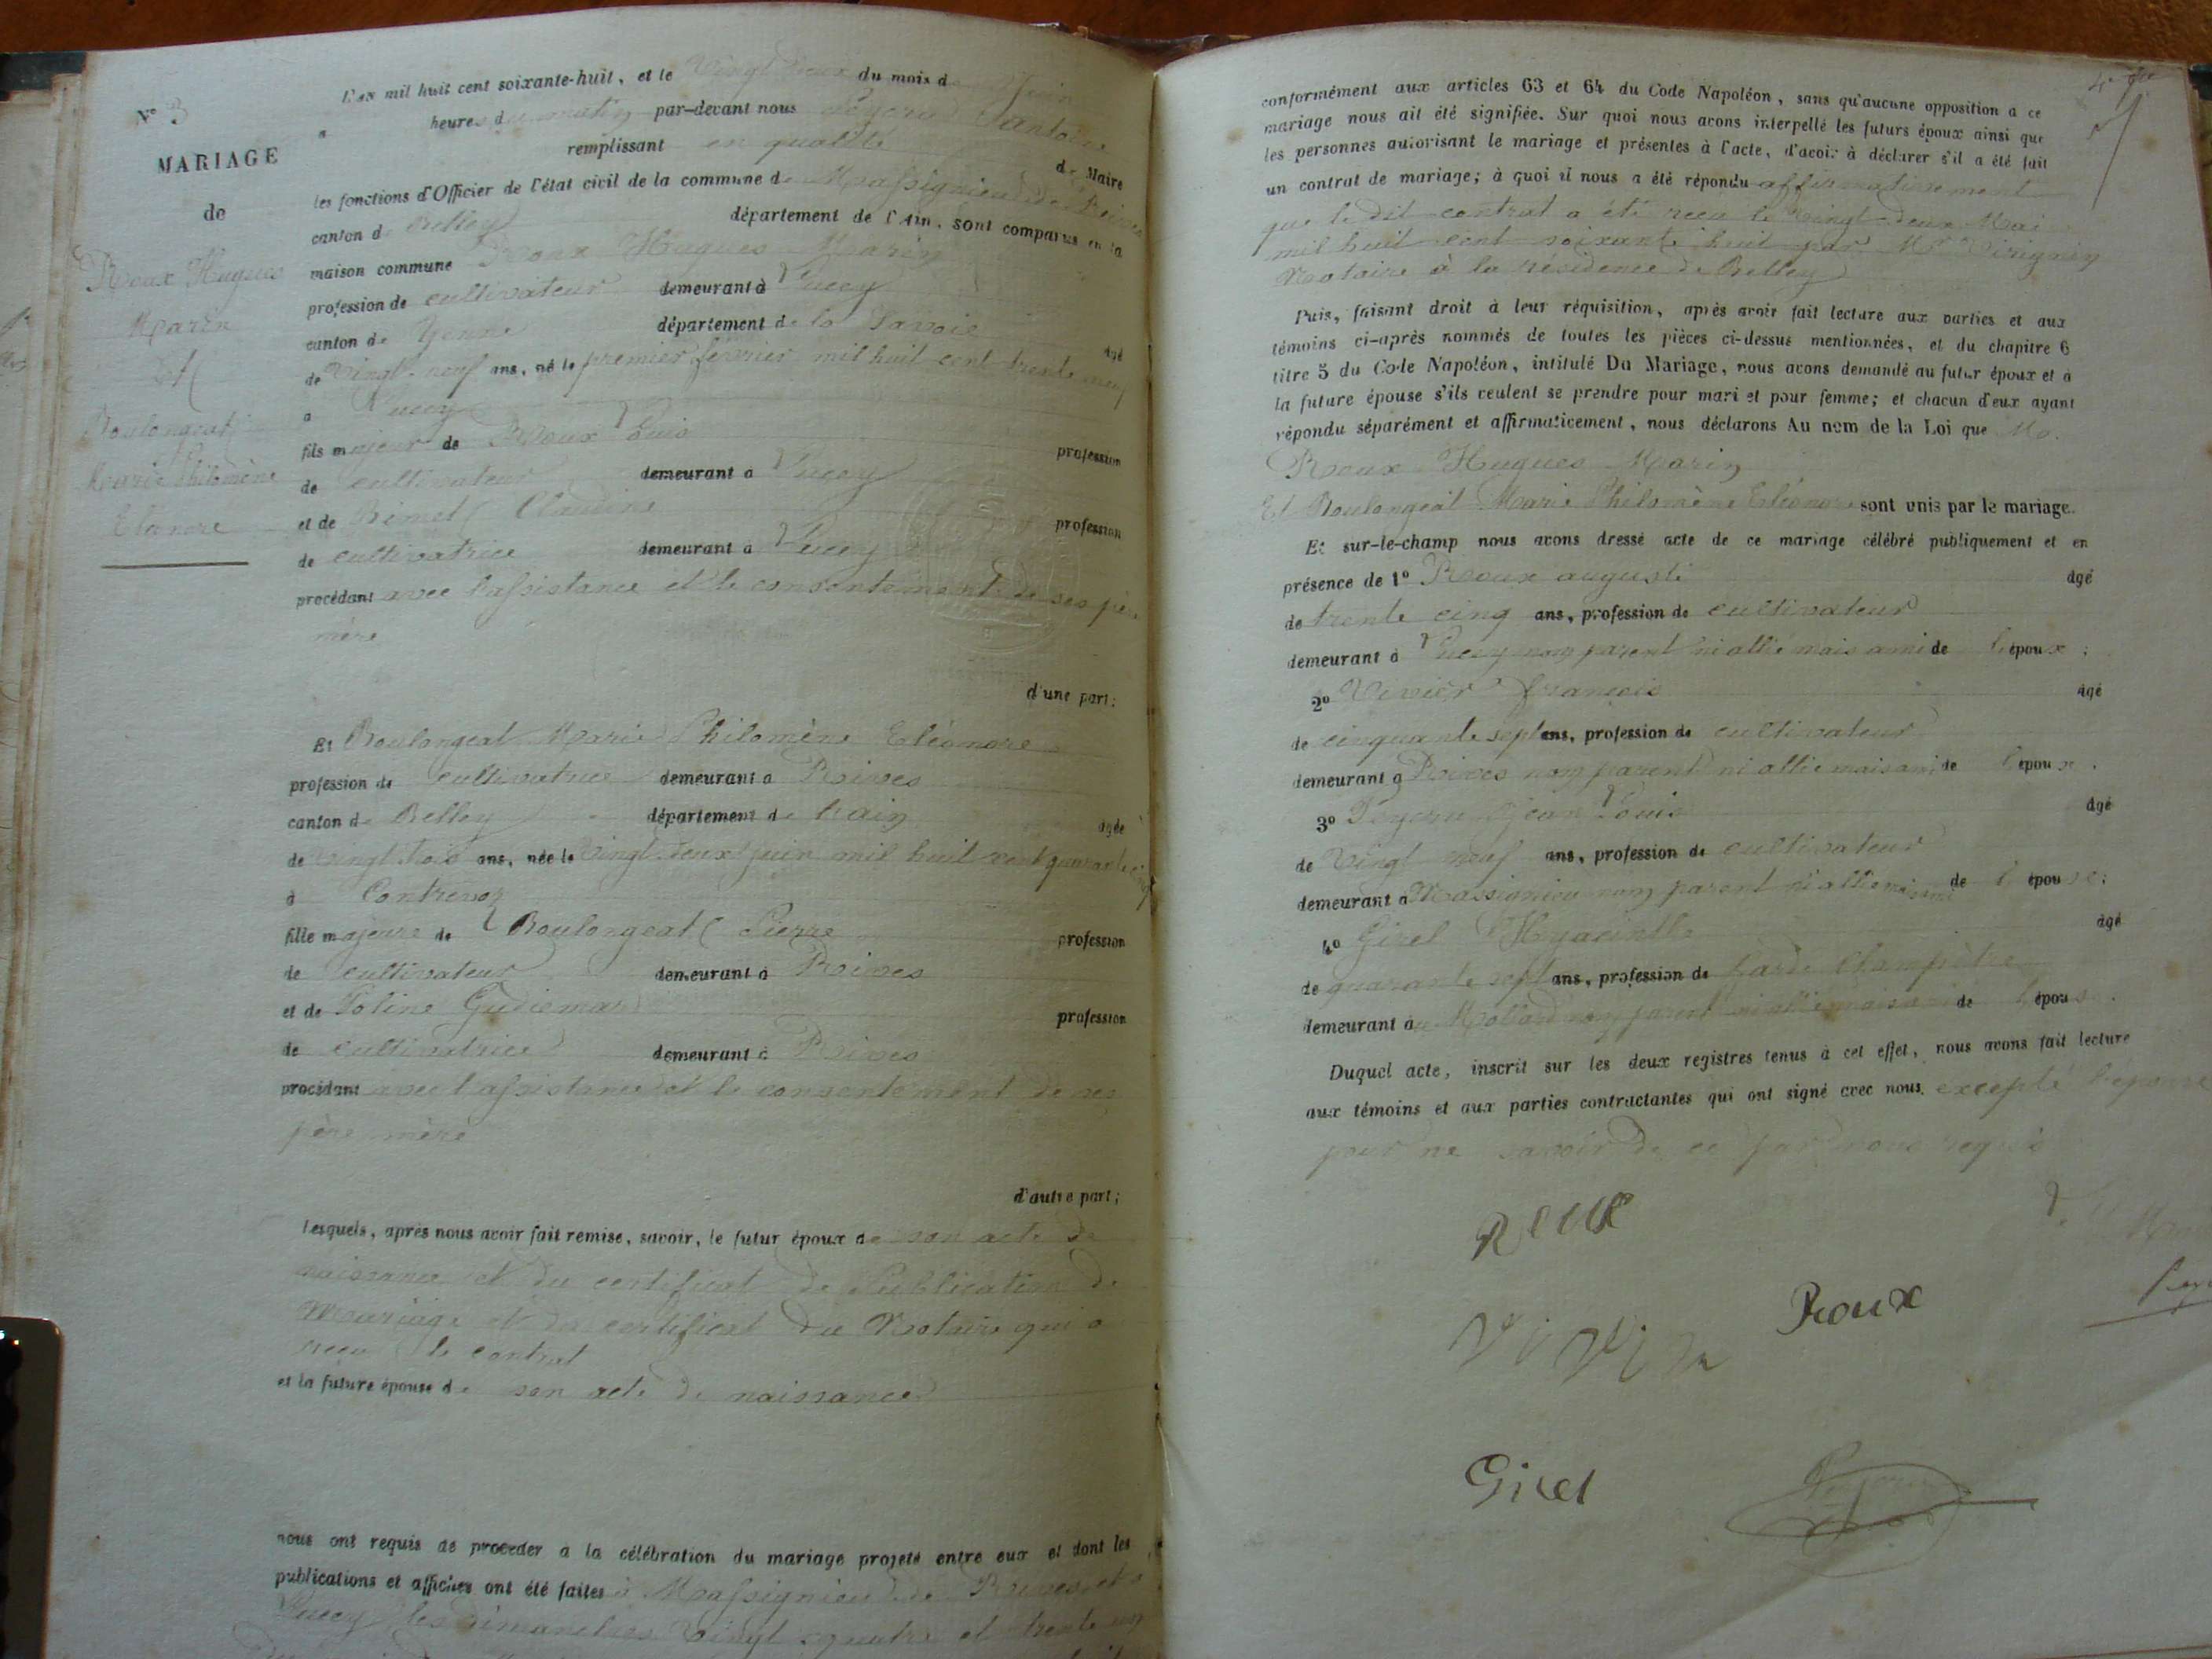 N° 3
MARIAGE
de
Roux Hugues
Marin
et
Boulongeat
Marie Philomène
Eléonore
L'an mil huit cent soixante-huit, et le Vingt deux du mois de Juin
a heures du matin par-devant nous Antoine
remplissant en qualité de Maire
les fonctions d'Officier de l'état civil de la commune de Massignieu de Rives
canton de Belley département de l'Ain, sont comparus en la
maison commune Roux Hugues Marin
profession de cultivateur demeurant à Lucey
canton de Yenne département de la Savoie agé
de Vingt-neuf ans, né le premier février mil huit cent trente neuf
a Lucey
fils majeur de Roux Louis profession
de cultivateur demeurant a Lucey
et de Rimet Claudine profession
de cultivatrice demeurant a Lucey
procédant avec l'assistance et le consentement de ses père
mère
d'une part;
Et Boulongeat Marie Philomène Eléonore
profession de cultivatrice demeurant a Rives
canton de Belley département de l'ain agée
de Vingt trois ans, née le Vingt deux juin mil huit cent quarante cinq
à Contrevoz
fille majeure de Boulongeat Pierre profession
de cultivateur demeurant à Rives
et de profession
de cultivatrice demeurant à Rives
procédant avec l'assistance et le consentement de ses
père mère
d'autre part;
lesquels, après nous avoir fait remise, savoir, le futur époux de son acte de
naissance et du certificat de Publication de
Mariage et du certificat du Notaire qui a
recu le contrat
et la future épouse de son acte de naissance
nous ont requis de proceder a la célébration du mariage projeté entre eux et dont les
publications et affiches ont été faites à Massignieu de Rives et à
Lucey les dimanches Vingt quatre et trente un
conformément aux articles 63 et 64 du Code Napoléon, sans qu'aucune opposition a ce
mariage nous ait été signifiée. Sur quoi nous avons interpellé les futurs époux ainsi que
les personnes autorisant le mariage et présentes à l'acte, d'avoir à déclarer s'il a été fait
un contrat de mariage; à quoi il nous a été répondu affirmativement
que le dit contrat a été recu le Vingt deux Mai
mil huit cent soixante huit par Me
Notaire à la résidence de Belley
Puis, faisant droit à leur réquisition, après avoir fait lecture aux parties et aux
témoins ci-après nommés de toutes les pièces ci-dessus mentionnées, et du chapitre 6
titre 5 du Code Napoléon, intitulé Du Mariage, nous avons demandé au futur époux et à
la future épouse s'ils veulent se prendre pour mari et pour femme; et chacun d'eux ayant
répondu séparément et affirmativement, nous déclarons Au nom de la Loi que
Roux Hugues Marin
Et Boulongeat Marie Philomène Eléonore sont unis par le mariage.
Et sur-le-champ nous avons dressé acte de ce mariage célébré publiquement et en
présence de 1° Roux auguste âgé
de trente cinq ans, profession de cultivateur
demeurant à Lucey non parent ni allié mais ami de l'époux;
2° Vivier françois âgé
de cinquante sept ans, profession de cultivateur
demeurant a Rives non parent ni allié mais ami de l'époux.
3° Peyern Jean Louis âgé
de Vingt neuf ans, profession de cultivateur
demeurant a Massignieu non parent ni allié mais ami de l'épouse;
4° Girel Hyacinthe âgé
de quarante sept ans, profession de Garde Champêtre
demeurant à Mollard non parent ni allié mais ami de l'épouse.
Duquel acte, inscrit sur les deux registres tenus à cet effet, nous avons fait lecture
aux témoins et aux parties contractantes qui ont signé avec nous. excepté l'epouse
pour ne savoir de ce par nous requis
Roux
Roux
Girel